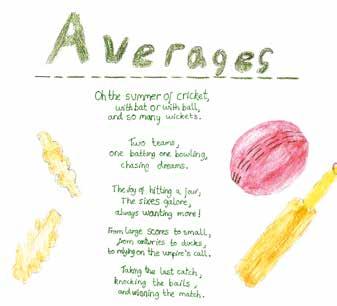 Averages
Oh the summer of cricket,
with bat or with ball,
and so many wickets.
Two teams,
one batting one bowling,
chasing dreams.
The joy of hitting a four,
The sixes galore,
always wanting more!
From large scores to small,
from centuries to ducks,
to relying on the umpire's call.
Taking the last catch,
knocking the bails,
and winning the match.